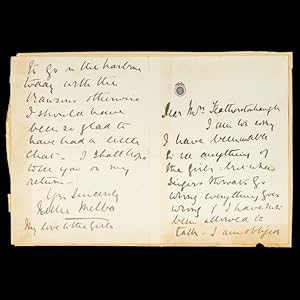 Dear Mrs Featherstonhaugh
I am so sorry
I have been unable
to see anything of
the girls - but when
Singers throats go
wrong everything goes
wrong & I have not
been allowed to
talk - I am obliged
to go on the harbour
today with the
otherwise
I should have
been so glad to
have had a little
chat - I shall hope
to see you on my
return -
Yrs Sincerely
Nellie Melba
My love to the girls